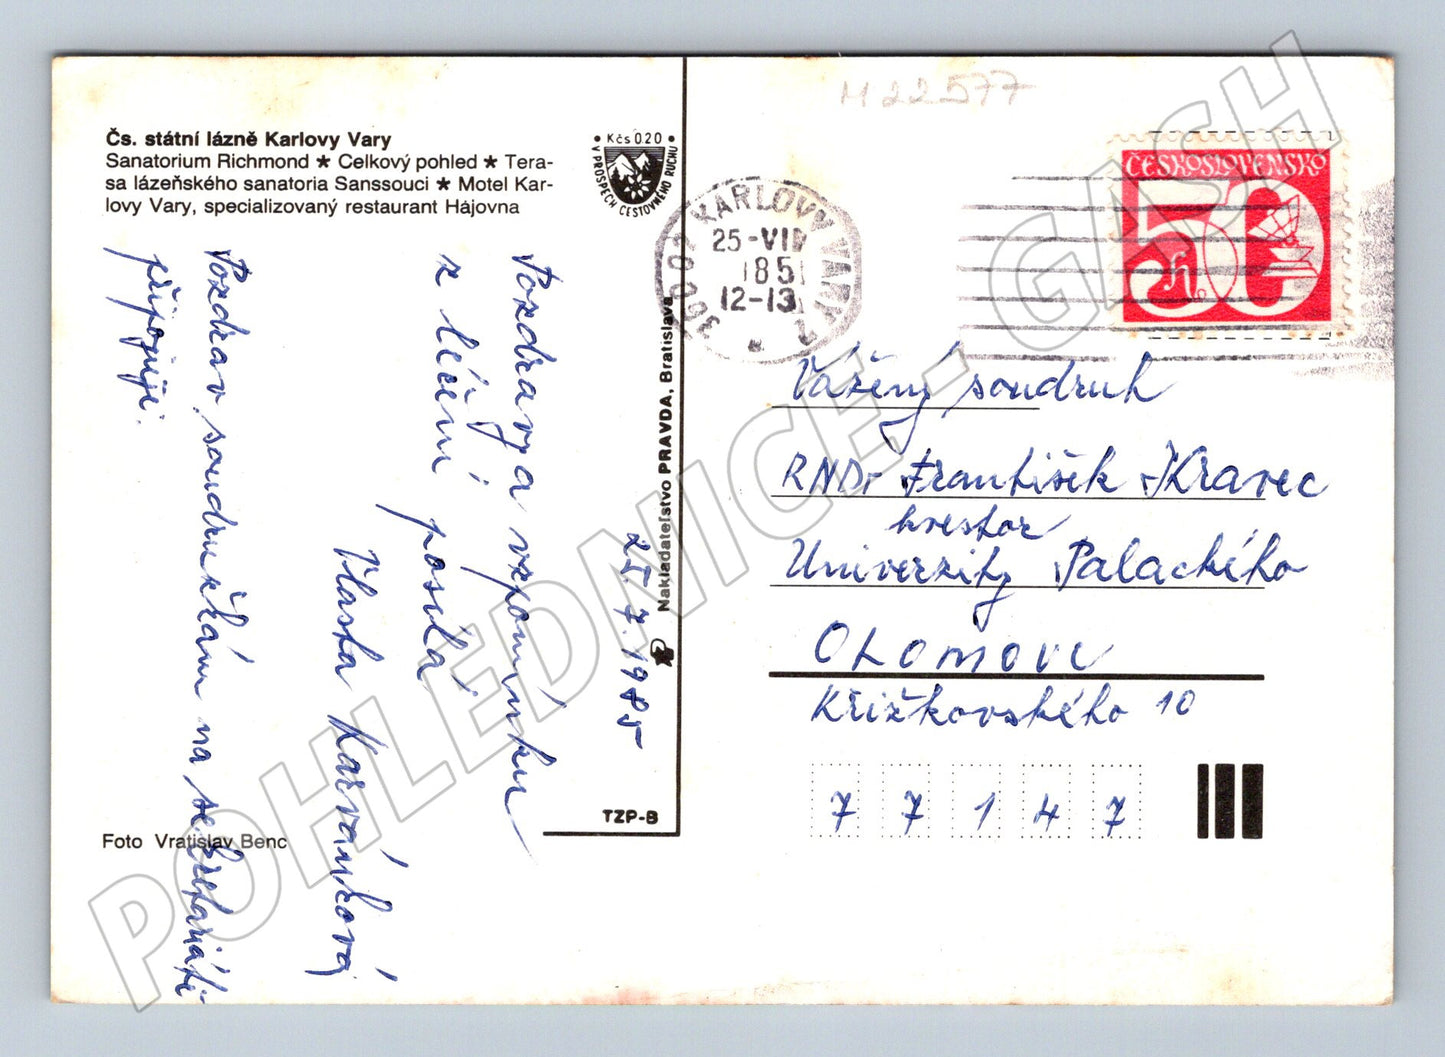 M22577
Čs. státní lázně Karlovy Vary
Sanatorium Richmond ★ Celkový pohled ★ Tera-
sa lázeňského sanatoria Sanssouci ★ Motel Kar-
lovy Vary, specializovaný restaurant Hájovna
• Kčs 0.20 •
V PROSPĚCH CESTOVNÉHO RUCHU
360 01 KARLOVY VARY 2
25-VII
85
12-13
ČESKOSLOVENSKO
50
h
25. 7. 1985
Pozdravy a vzpomínku
z léčení posílá
Vlasta Karvánková
Pozdrav soudružkám na sekretariátě
připojuji.
Nakladateľstvo PRAVDA, Bratislava
TZP-B
Foto Vratislav Benc
Vážený soudruh
RNDr František Kravec
kvestor
Univerzity Palackého
OLOMOUC
Křižkovského 10
7 7 1 4 7
POHLEDNICE - GASH